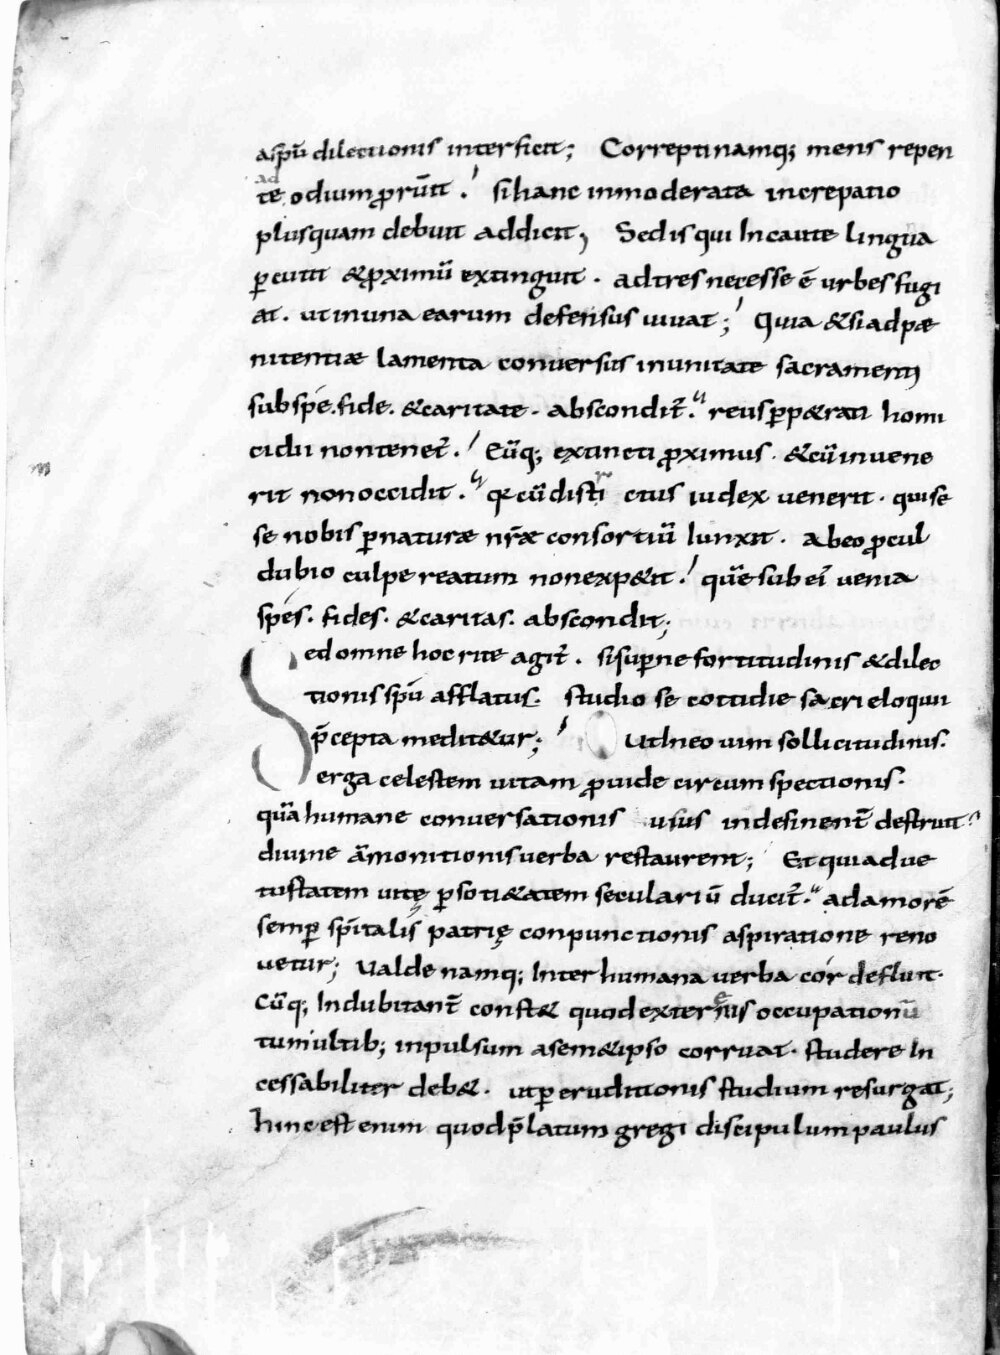 aspū dilectionis interficit; Correptinamq; mens repen
ad
te odium ꝓrūit. si hanc inmoderata increpatio
plusquam debuit addicit, Sed is qui Incaute lingua
ꝑcutit &ꝓximū extinguit. ad tres necesse ē urbes fugi
at. ut in una earum defensus uiuat; Quia &si ad pæ
nitentiæ lamenta conversus in unitate sacramenti
sub spe. fide. &caritate. abscondit̄. reus ꝑp&rati homi
cidii non tenet̄. Eūq; extincti ꝓximus. &cū inuene
rit non occidit. qa cū districti eius iudex uenerit. qui se
se nobis ꝑ naturæ nr̄æ consortiū Iunxit. Ab eo ꝓcul
dubio culpe reatum non exp&it. quē sub ei venia
spes. fides. &caritas. abscondit;
Sed omne hoc rite agit̄. si suꝑne fortitudinis &dilec
tionis spū afflatus. studio se cottidie sacri eloquii
p̄cepta medit&ur; Ut In eo uim sollicitudinis.
erga celestem uitam ꝓuide circumspectionis.
quā humane conversationis usus indesinent̄ destruit.
diuine āmonitionis verba restaurent; Et qui ad ue
tustatem uitę ꝑ soti&atem seculariū ducit̄. ad amorē
semꝑ sp̄italis patrię conpunctionis aspiratione reno
uetur; Ualde namq; Inter humana verba cór defluit.
Cūq; Indubitant̄ const& quod externis occupationū
tumultib; inpulsum a sem&ipso corruat. studere In
cessabiliter deb&. ut ꝑ eruditionis studium resurgat;
hinc est enim quod p̄latum gregi discipulum paulus